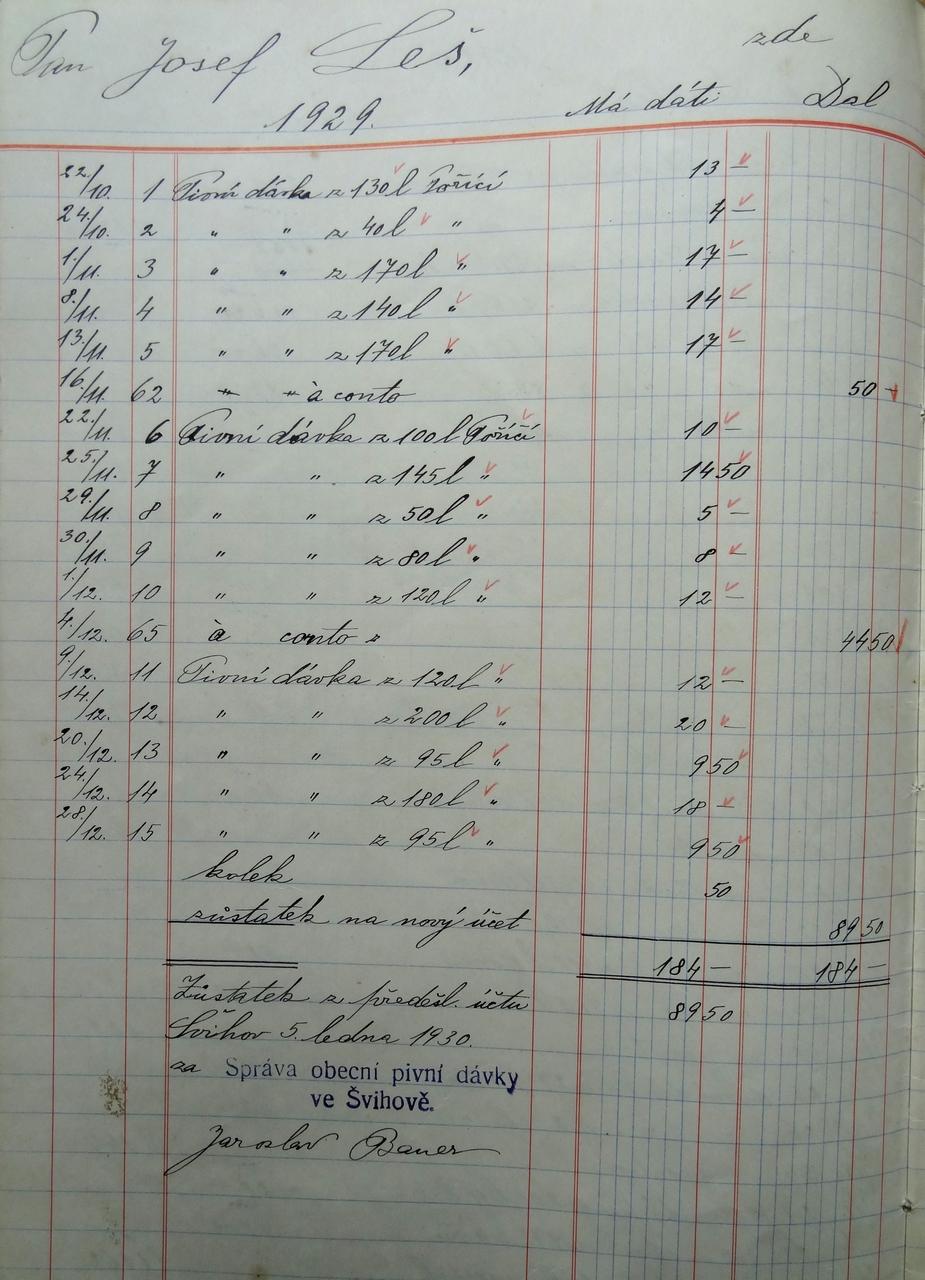 Pan Josef Leš, zde
1929. Má dáti Dal
22./10. 1 Pivní dávka z 130 l Poříčí 13 —
24./10. 2 " " z 40 l " 4 —
1./11. 3 " " z 170 l " 17 —
8./11. 4 " " z 140 l " 14 —
13./11. 5 " " z 170 l " 17 —
16./11. 62 " " à conto 50 —
22./11. 6 Pivní dávka z 100 l Poříčí 10 —
25./11. 7 " " z 145 l " 14 50
29./11. 8 " " z 50 l " 5 —
30./11. 9 " " z 80 l " 8 —
1./12. 10 " " z 120 l " 12 —
4./12. 65 à conto " 44 50
9./12. 11 Pivní dávka z 120 l " 12 —
14./12. 12 " " z 200 l " 20 —
20./12. 13 " " z 95 l " 9 50
24./12. 14 " " z 180 l " 18 —
28./12. 15 " " z 95 l " 9 50
kolek 50
zůstatek na nový účet 89 50
184 — 184 —
Zůstatek z předešl. účtu 89 50
Švihov 5. ledna 1930.
za Správa obecní pivní dávky
ve Švihově.
Jaroslav Bauer